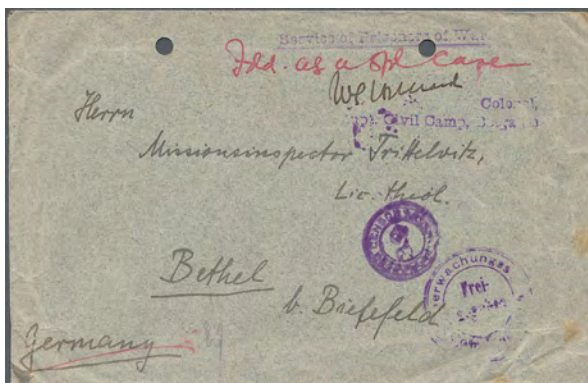 Service of Prisoners of War
Fdd. as a spl Case
Colonel,
Civil Camp,
Herrn
Missionsinspector Trittelvitz,
Lic. theol.
CENSOR
Bethel
b. Bielefeld
erwachungss
Frei-
Germany